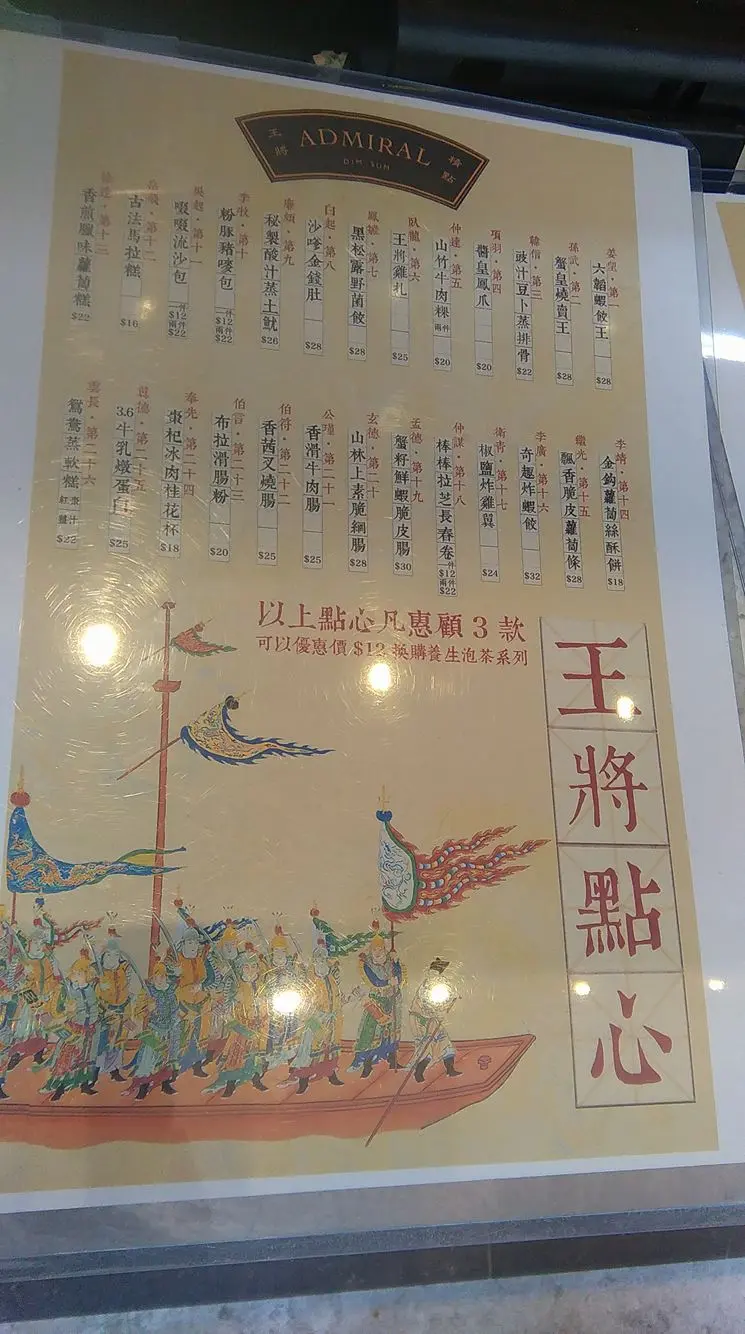 王將
ADMIRAL
DIM SUM
精點
姜望・第一
六韜蝦餃王 $28
孫武・第二
蟹皇燒賣王 $28
韓信・第三
豉汁豆卜蒸排骨 $22
項羽・第四
醬皇鳳爪 $20
仲達・第五
山竹牛肉粿 兩件 $20
臥龍・第六
王將雞札 $25
鳳雛・第七
黑松露野菌餃 $28
白起・第八
沙嗲金錢肚 $28
廉頗・第九
秘製酸汁蒸土魷 $26
李牧・第十
粉豚豬嘜包 一件$12 兩件$22
吳起・第十一
啜啜流沙包 一件$12 兩件$22
岳飛・第十二
古法馬拉糕 $16
・第十三
香煎臘味蘿蔔糕 $22
李靖・第十四
金鈎蘿蔔絲酥餅 $18
繼光・第十五
飄香脆皮蘿蔔條 $28
李廣・第十六
奇趣炸蝦餃 $32
衛青・第十七
椒鹽炸雞翼 $24
仲謀・第十八
棒棒拉芝長春卷 一件$12 兩件$22
孟德・第十九
蟹籽鮮蝦脆皮腸 $30
玄德・第二十
山林上素脆網腸 $28
公瑾・第二十一
香滑牛肉腸 $25
伯符・第二十二
香茜叉燒腸 $25
伯言・第二十三
布拉滑腸粉 $20
奉先・第二十四
棗杞冰肉桂花杯 $18
翼德・第二十五
3.6牛乳燉蛋白 $25
雲長・第二十六
鴛鴦蒸軟糕 紅棗 薑汁 $22
以上點心凡惠顧 3 款
可以優惠價 $12 換購養生泡茶系列
王將點心